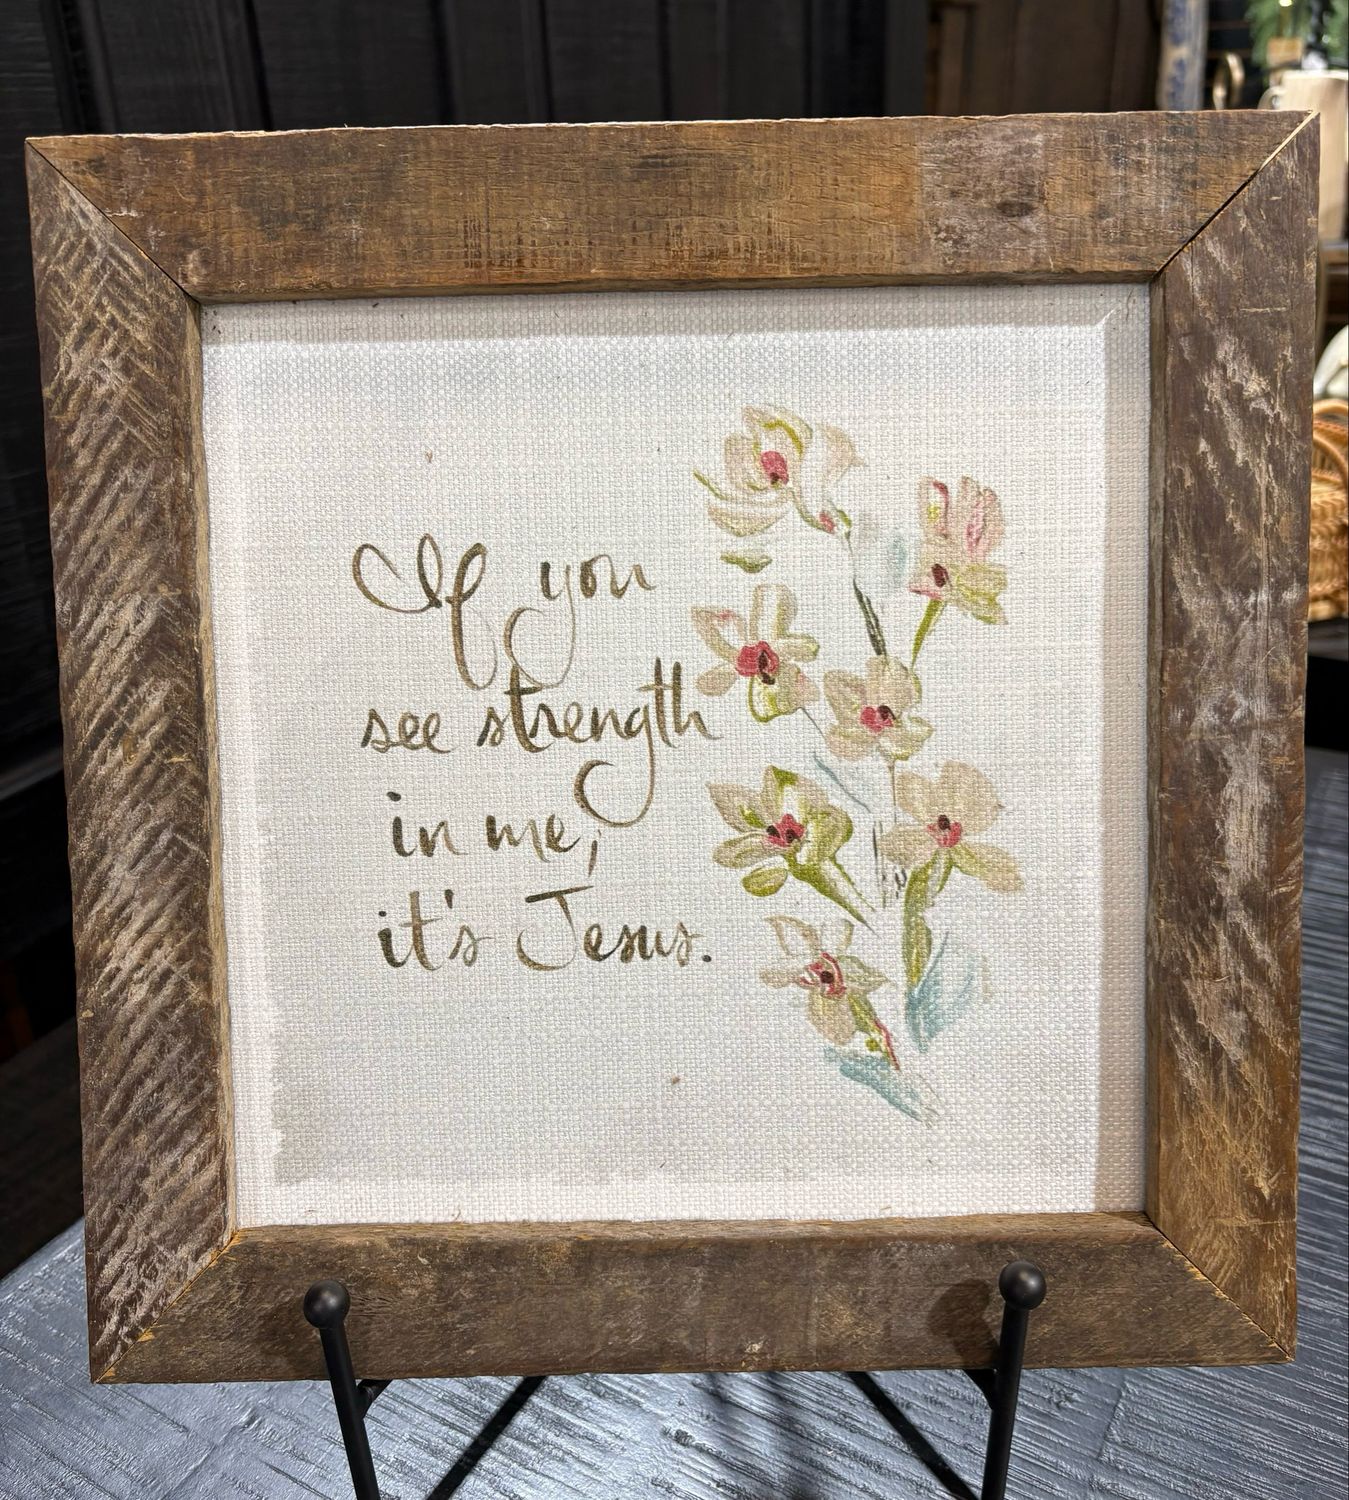 If you
see strength
in me,
it's Jesus.